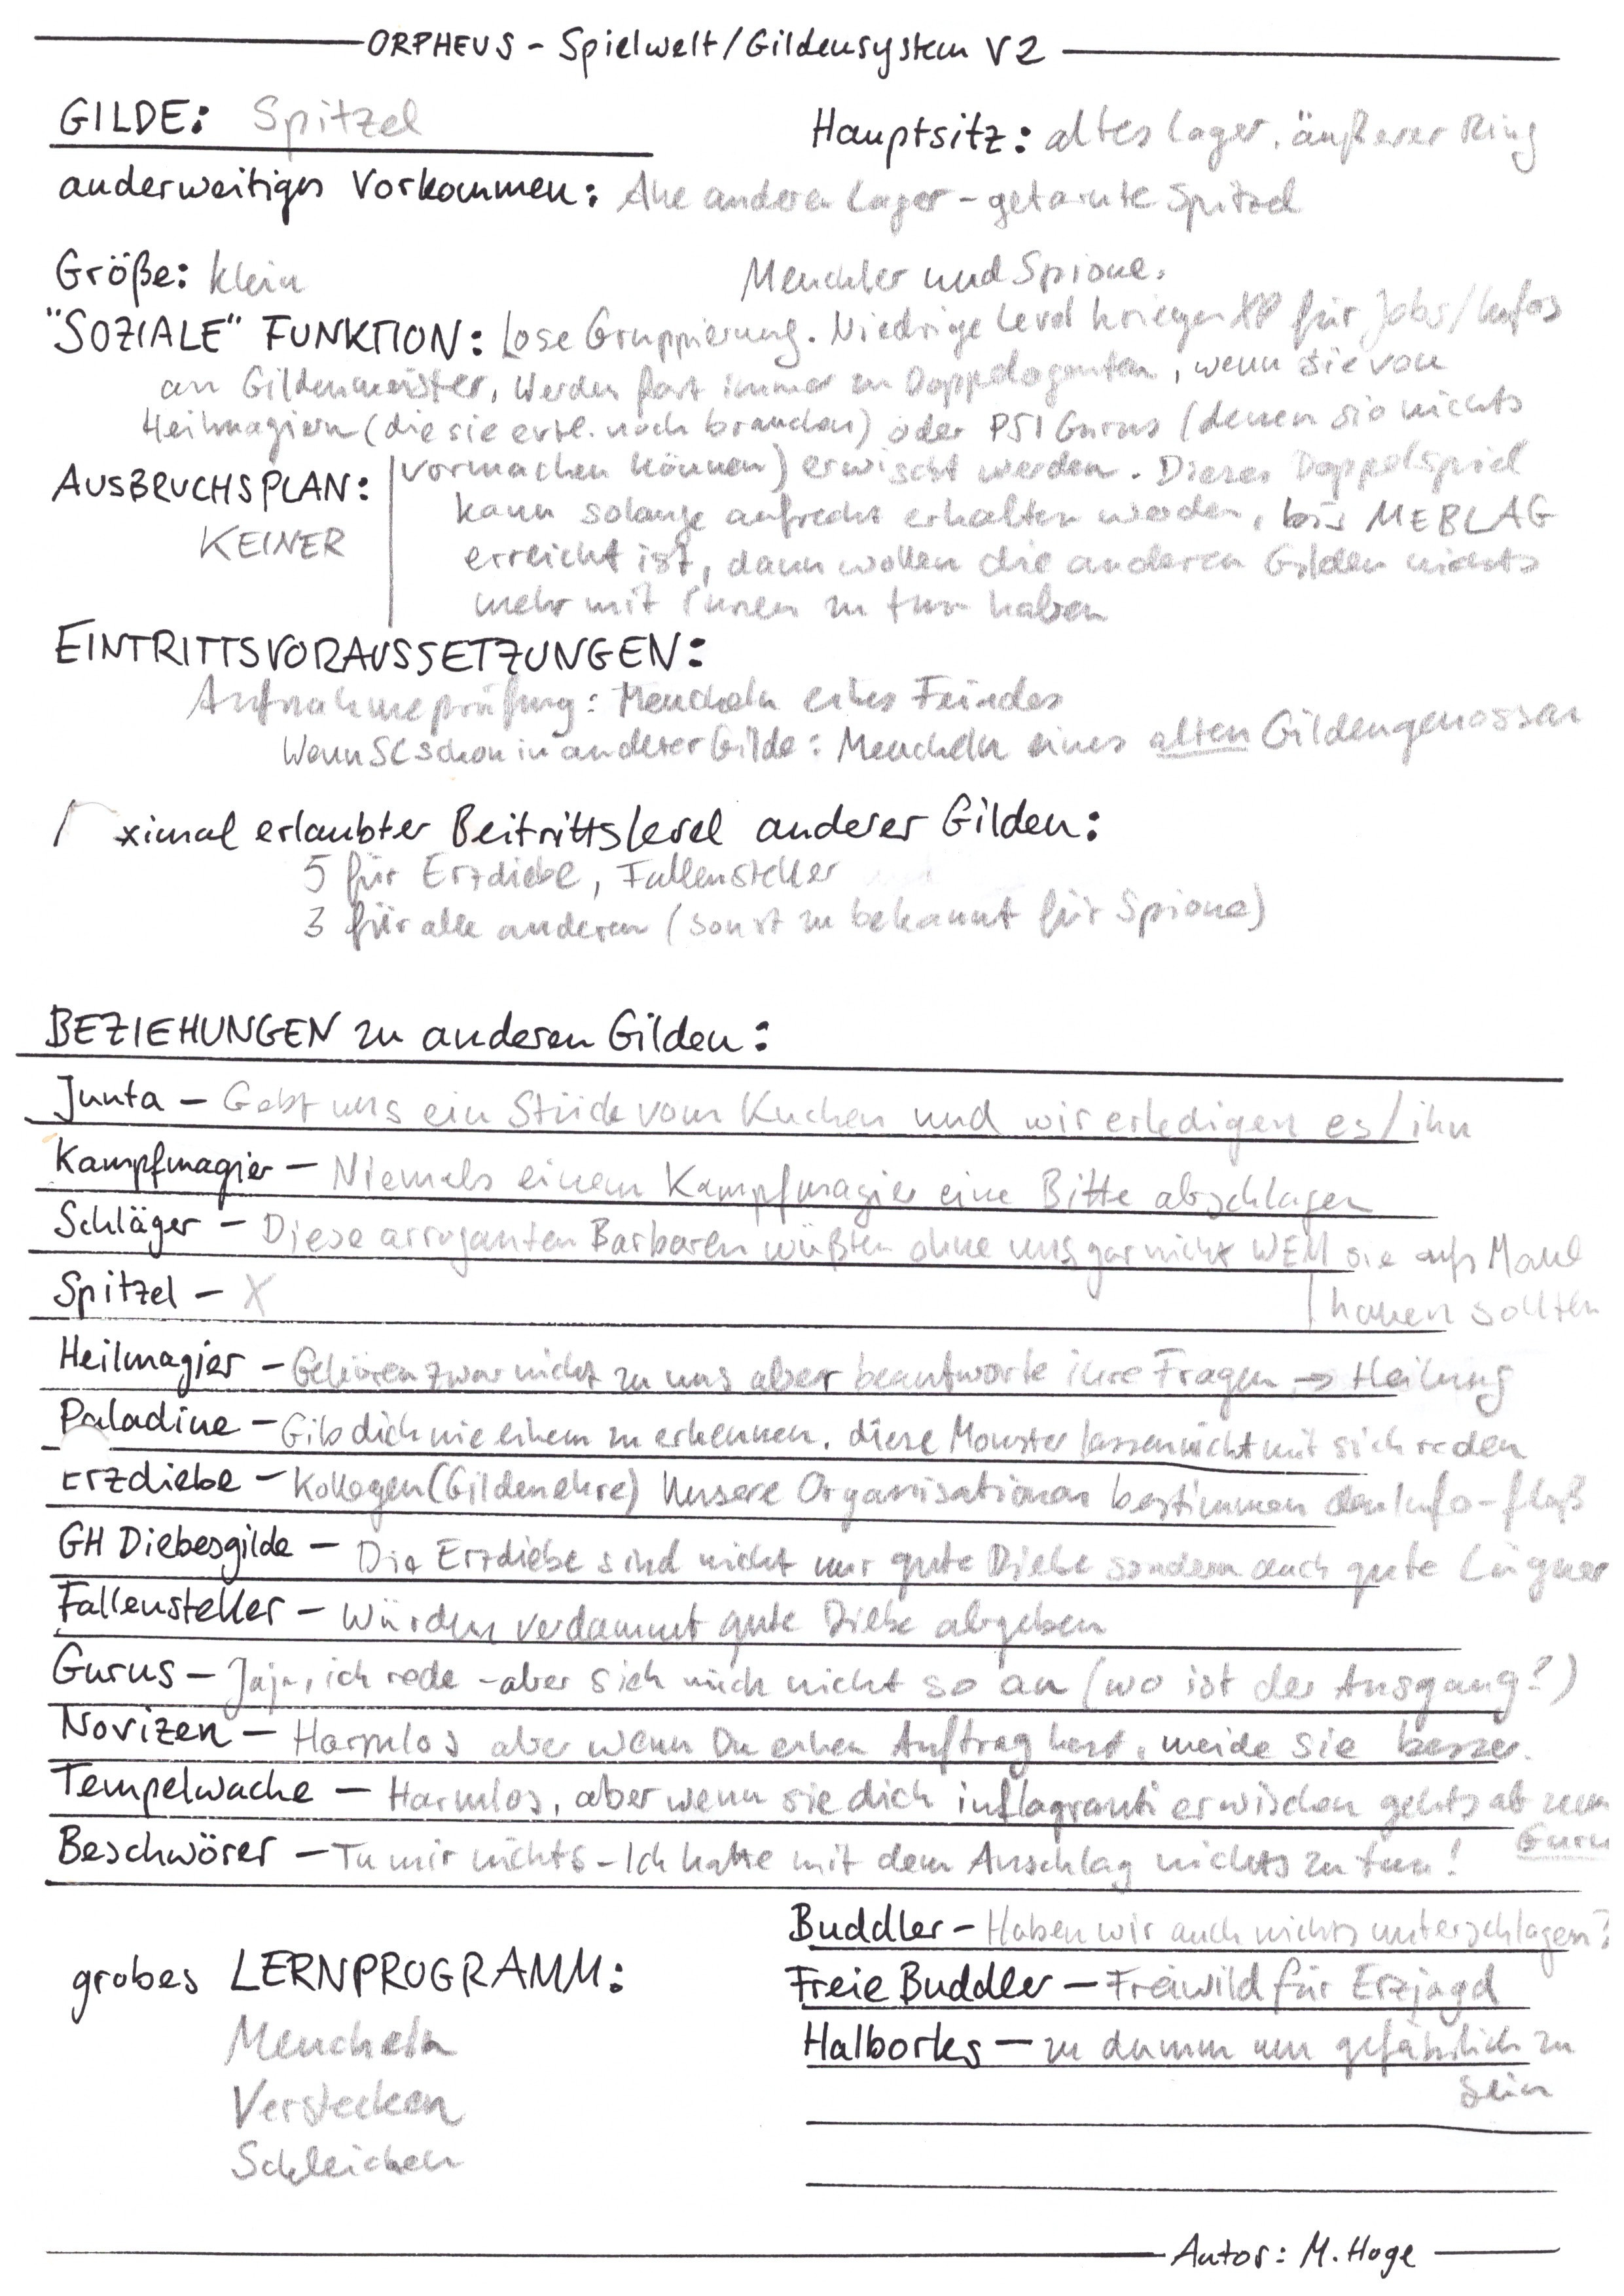 ORPHEUS - Spielwelt/Gildensystem V2
GILDE: Spitzel
Hauptsitz: altes Lager, äußerer Ring
anderweitiges Vorkommen: Alle anderen Lager - getarnte Spitzel
Größe: klein
Meuchler und Spione.
"SOZIALE" FUNKTION: Lose Gruppierung. Niedrige Level kriegen XP für Jobs/Infos
an Gildenmeister, Werden fast immer zu Doppelagenten, wenn sie von
Heilmagiern (die sie evtl. noch brauchen) oder PSI Gurus (denen sie nichts
vormachen können) erwischt werden. Dieses Doppelspiel
kann solange aufrecht erhalten werden, bis MEBLAG
erreicht ist, dann wollen die anderen Gilden nichts
mehr mit ihnen zu tun haben
AUSBRUCHSPLAN:
KEINER
EINTRITTSVORAUSSETZUNGEN:
Aufnahmeprüfung: Meucheln eines Feindes
Wenn SC schon in anderer Gilde: Meucheln eines alten Gildengenossen
ximal erlaubter Beitrittslevel anderer Gilden:
5 für Erzdiebe, Fallensteller
3 für alle anderen (sonst zu bekannt für Spione)
BEZIEHUNGEN zu anderen Gilden:
Junta - Gebt uns ein Stück vom Kuchen und wir erledigen es/ihn
Kampfmagier - Niemals einem Kampfmagier eine Bitte abschlagen
Schläger - Diese arroganten Barbaren wüßten ohne uns gar nicht WEM sie aufs Maul
hauen sollten
Spitzel - X
Heilmagier - Gehören zwar nicht zu uns aber beantworte ihre Fragen → Heilung
Paladine - Gib dich nie einem zu erkennen, diese Monster lassen nicht mit sich reden
Erzdiebe - Kollegen (Gildenehre) Unsere Organisationen bestimmen den Info-fluß
GH Diebesgilde - Die Erzdiebe sind nicht nur gute Diebe sondern auch gute Lügner
Fallensteller - Würden verdammt gute Diebe abgeben
Gurus - Jaja, ich rede - aber sieh mich nicht so an (wo ist der Ausgang?)
Novizen - Harmlos aber wenn Du einen Auftrag hast, meide sie besser.
Tempelwache - Harmlos, aber wenn sie dich inflagranti erwischen gehts ab zum
Guru
Beschwörer - Tu mir nichts - Ich hatte mit dem Anschlag nichts zu tun!
Buddler - Haben wir auch nichts unterschlagen?
Freie Buddler - Freiwild für Erzjagd
Halborks - zu dumm um gefährlich zu
sein
grobes LERNPROGRAMM:
Meucheln
Verstecken
Schleichen
Autor: M. Hoge